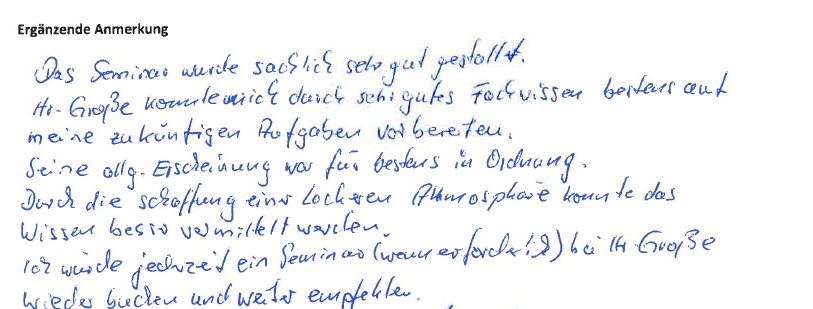 Ergänzende Anmerkung
Das Seminar wurde sachlich sehr gut gestallt.
Hr. Große konnte mich durch sehr gutes Fachwissen bestens auf
meine zukünftigen Aufgaben vorbereiten.
Seine allg. Erscheinung war für bestens in Ordnung.
Durch die schaffung einer lockeren Athmosphäre konnte das
Wissen besser vermittelt werden.
Ich würde jederzeit ein Seminar (wenn erforderlich) bei Hr. Große
wieder buchen und weiter empfehlen.